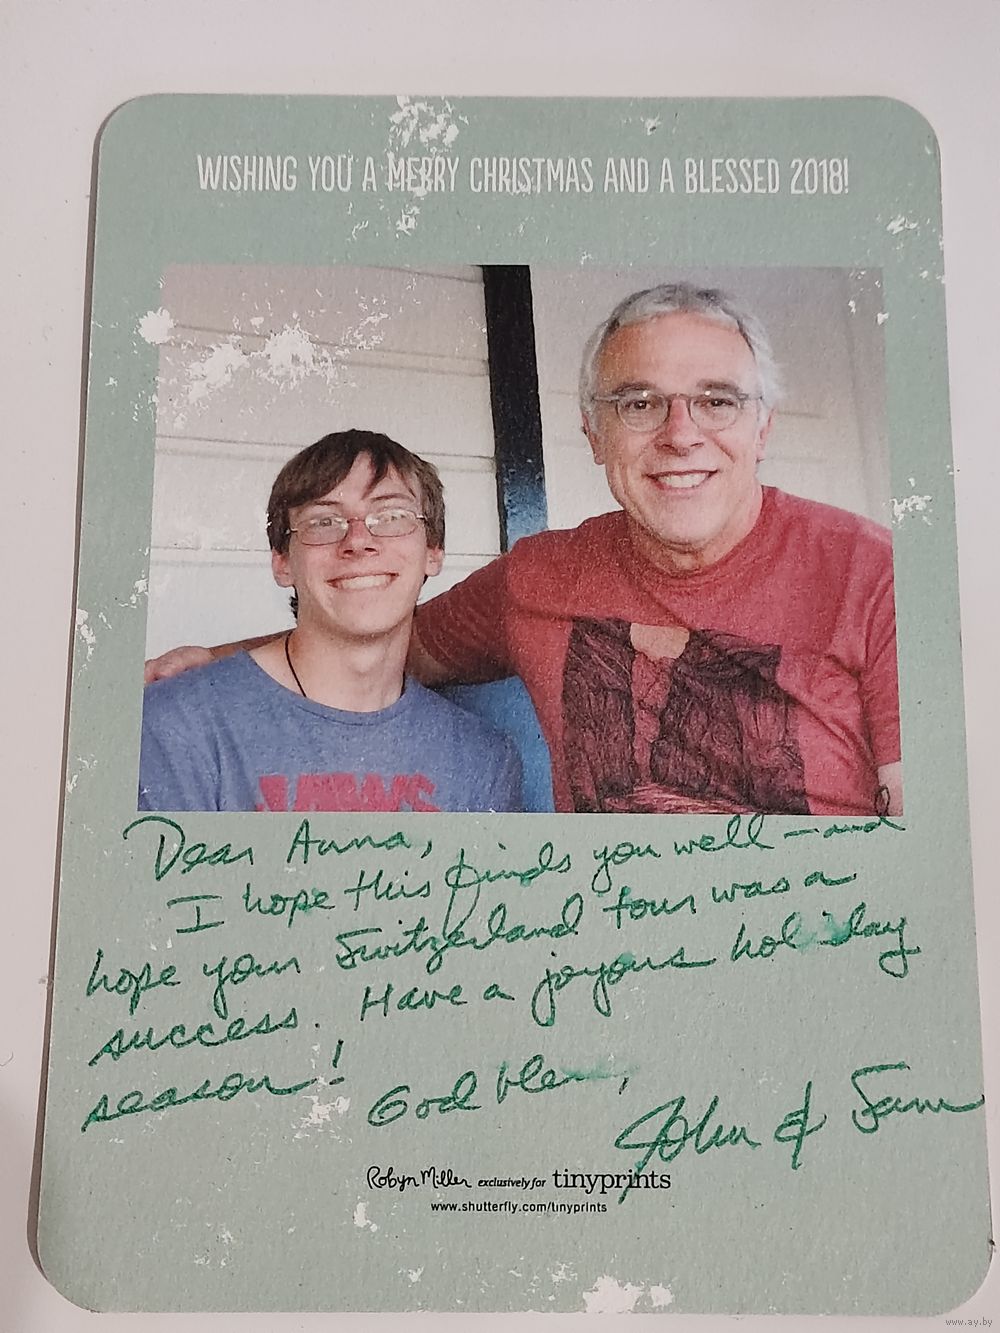 WISHING YOU A MERRY CHRISTMAS AND A BLESSED 2018!
Dear Anna,
I hope this finds you well — and
hope your Switzerland tour was a
success. Have a joyous holiday
season!
God bless,
John & Sam
Robyn Miller exclusively for tinyprints
www.shutterfly.com/tinyprints
www.ay.by